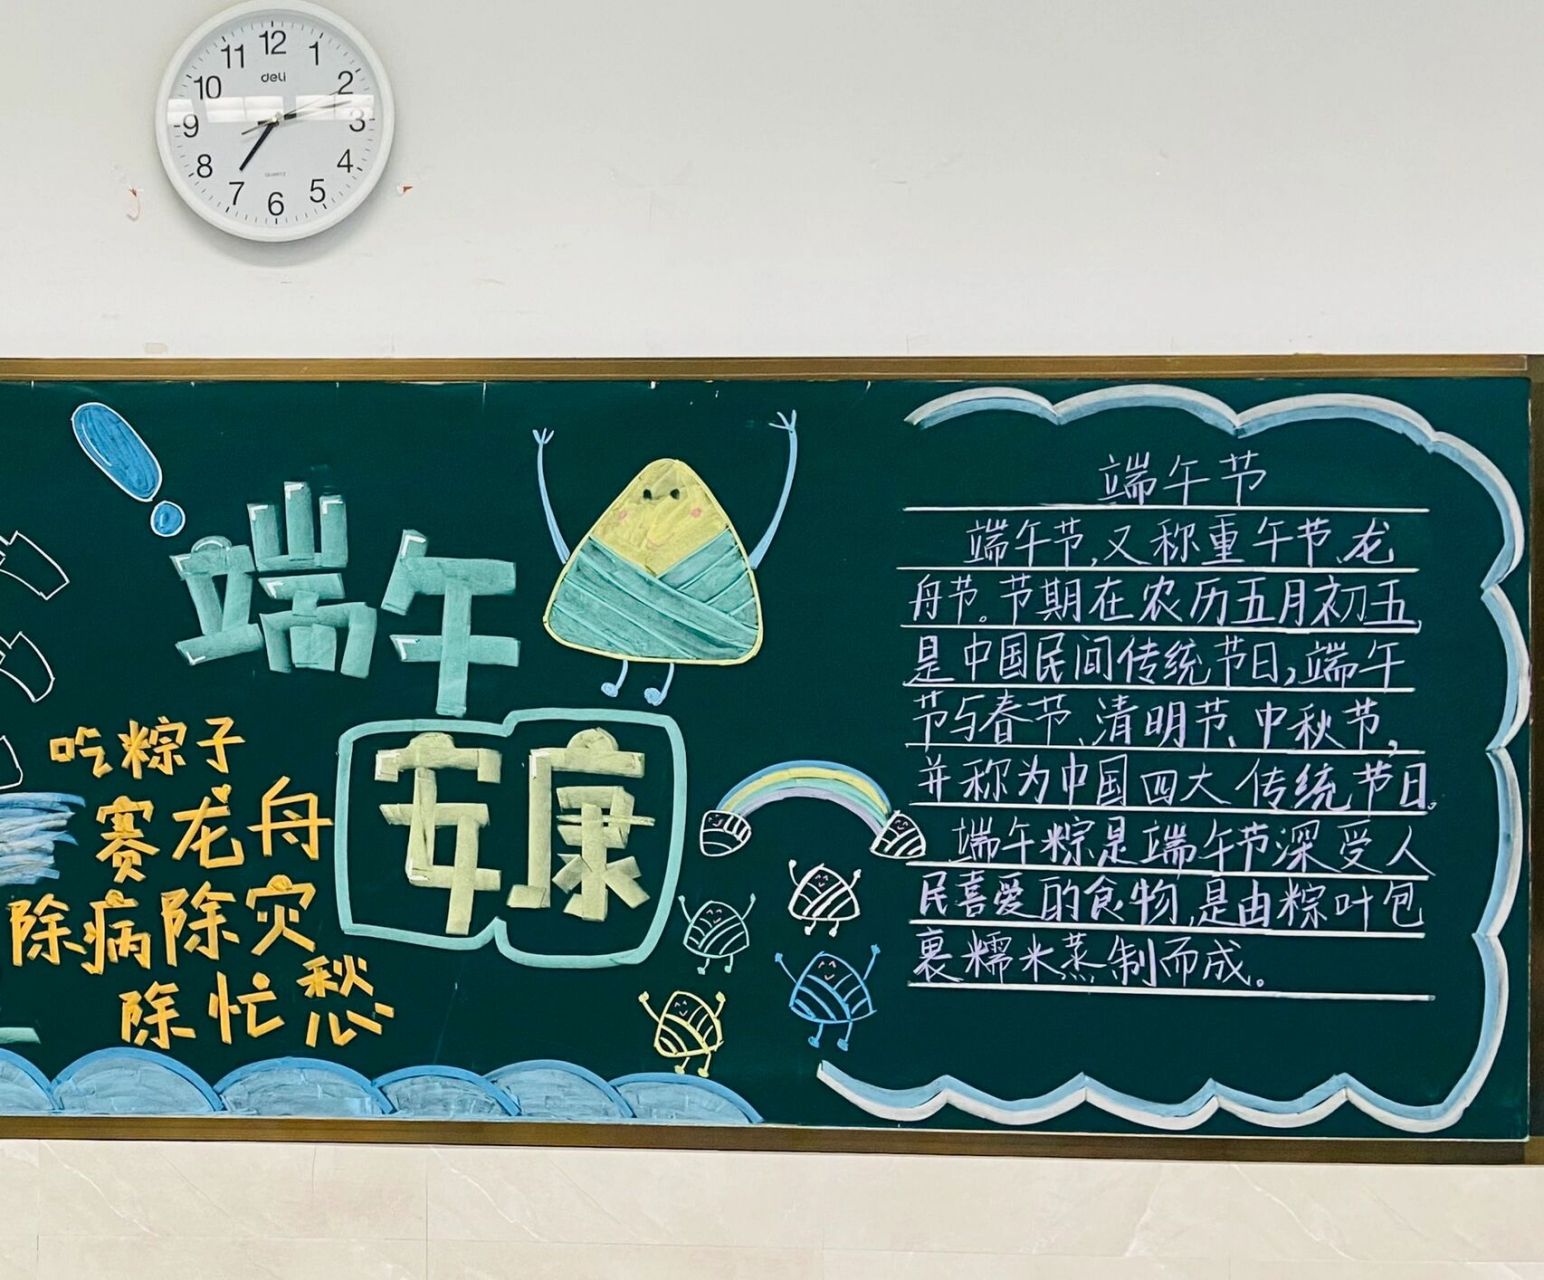 12
11
1
10
2
deli
9
3
8
4
QUARTZ
7
5
6
端午
安康
吃粽子
赛龙舟
除病除灾
除忙愁
端午节
端午节,又称重午节、龙
舟节。节期在农历五月初五,
是中国民间传统节日,端午
节与春节、清明节、中秋节,
并称为中国四大传统节日。
端午粽是端午节深受人
民喜爱的食物,是由粽叶包
裹糯米蒸制而成。